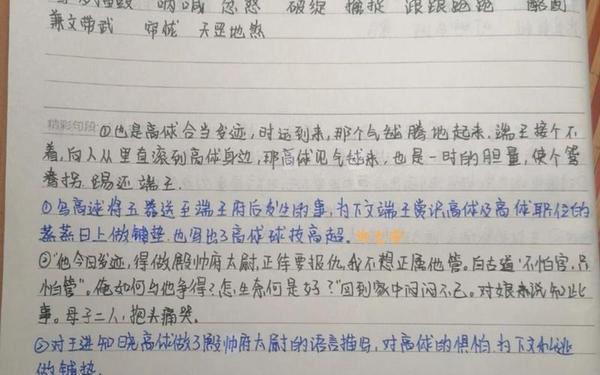 呐喊 忽然 破绽 捕捉 踉踉跄跄
兼文带武 帘栊 天罡地煞
精彩句段:
①也是高俅合当发迹，时运到来，那个气毬腾地起来，端王接个不
着，向人丛里直滚到高俅身边，那高俅见气毬来，也是一时的胆量，使个鸳
鸯拐，踢还端王。
①写高俅将玉器送至端王府后发生的事，为下文端王赏识高俅及高俅职位的
蒸蒸日上做铺垫，也写出了高俅球技高超。
②"他今日发迹，得做殿帅府太尉，正待要报仇，我不想正属他管。自古道'不怕官，只
怕管"。俺如何与他争得？怎生奈何是好？"回到家中闷闷不已。对娘亲说知此
事。母子二人，抱头痛哭。
②对王进知晓高俅做了殿帅府太尉的语言描写，对高俅的惧怕，为下文
做铺垫。